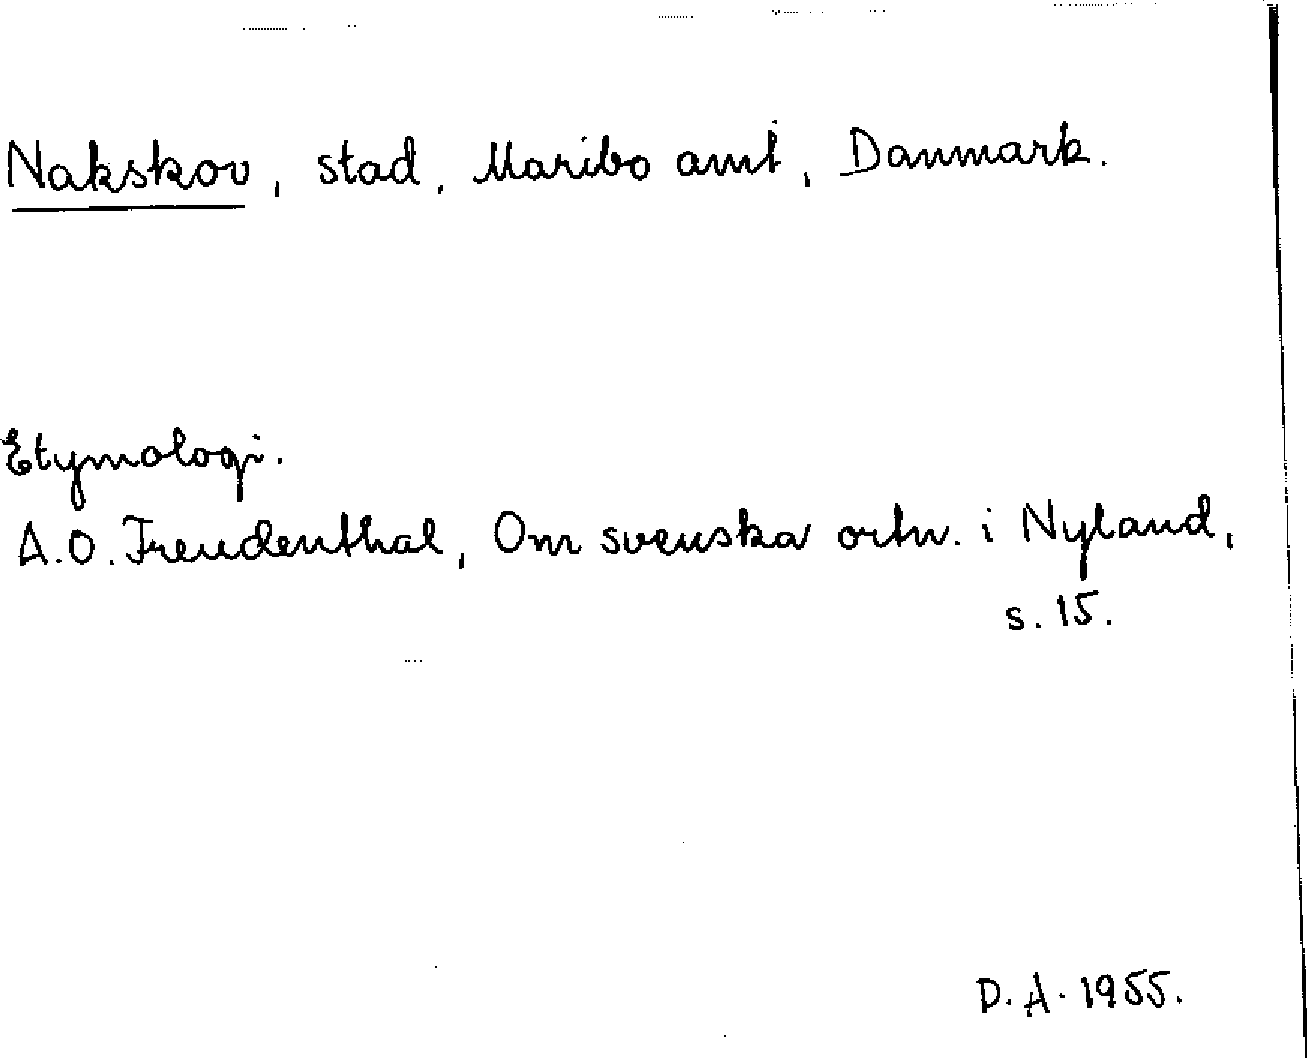 Nakskov, stad, Maribo amt, Danmark.
Etymologi.
A.O. Freudenthal, Om svenska ortn. i Nyland,
s. 15.
D.A. 1955.